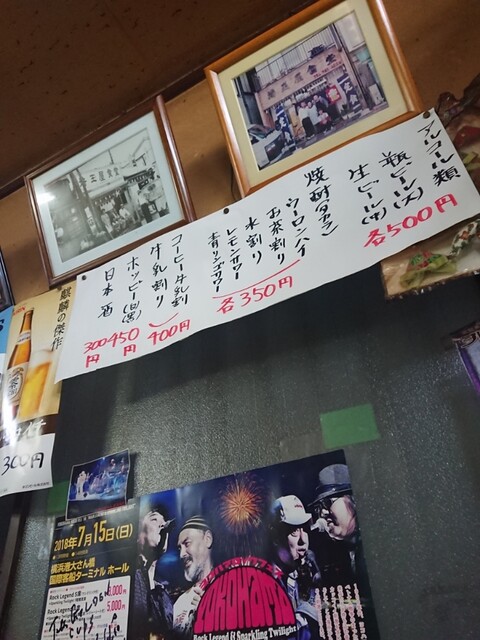 アルコール類
瓶ビール(大)
生ビール(中)
各500円
焼酎(タカラ)
ウーロンハイ
お茶割り
水割り
レモンサワー
青リンゴサワー
各350円
コーヒー牛乳割
牛乳割り
400円
ホッピー(白)(黒)
450円
日本酒
300円
麒麟の傑作
300円
2018年7月15日(日)
横浜港大さん橋
国際客船ターミナル ホール
Rock Legend S席
5,000円
YOKOHAMA
Rock Legend ft Sparkling Twilight